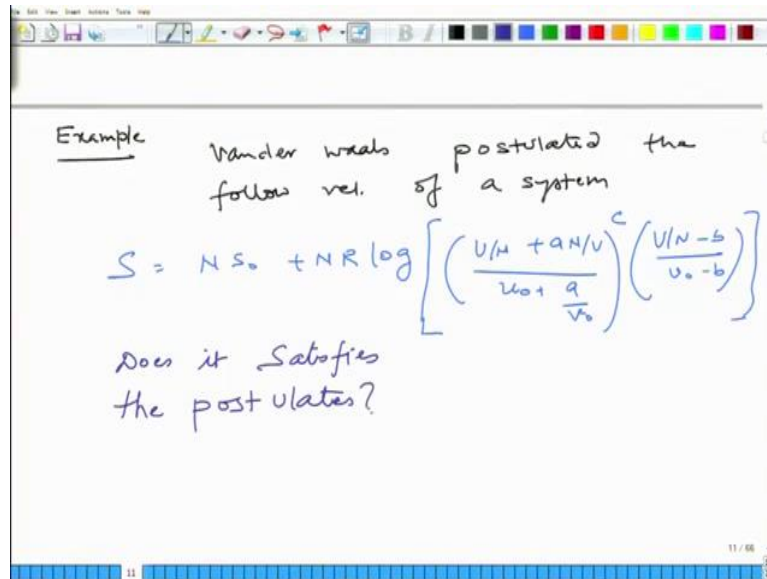 Edit View Insert Actions Tools Help
Example Vander waals postulated the
follow rel. of a system
S = N S₀ + NR log [ ( (U/N + aN/V) / (u₀ + a/v₀) )^c ( (V/N - b) / (v₀ - b) ) ]
Does it Satisfies
the postulates?
11 / 66
11